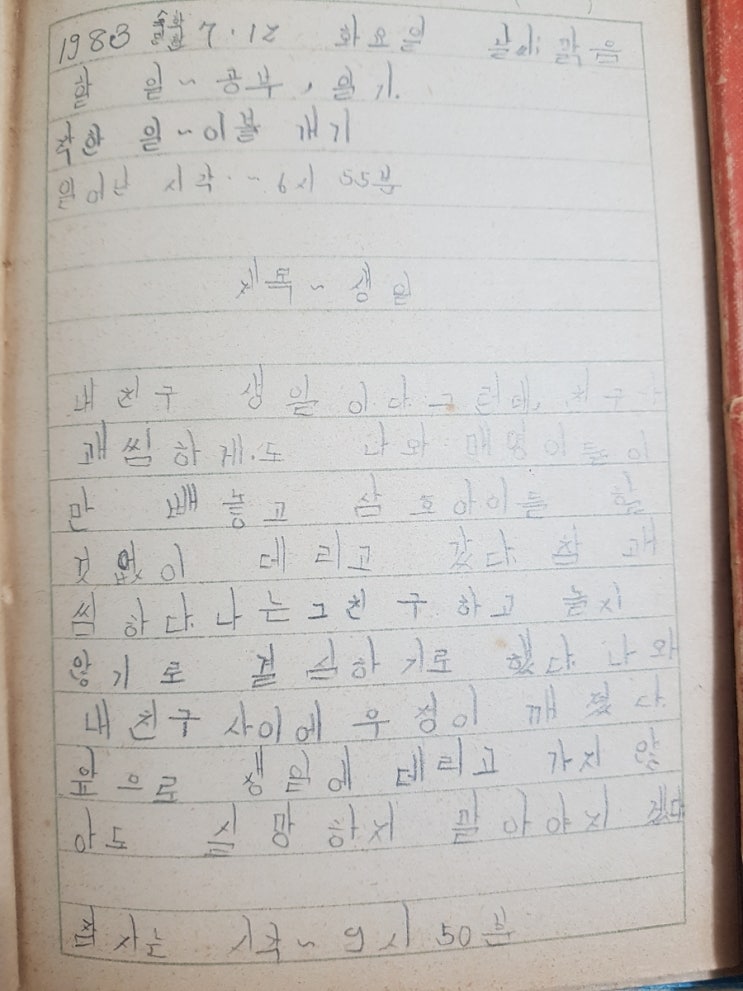 1983 7.12 화요일 날씨 맑음
할 일~공부, 일기.
착한 일~이불 개기
일어난 시각.~6시 55분
제목~생일
내 친구 생일이다그런데, 친구가
괘씸하게.도 나와 들이
만 빼놓고 삼호아이들 할
것없이 데리고 갔다. 참 괘
씸하다. 나는그친구하고 놀지
않기로 결심하기로 했다. 나와
내친구사이에 우정이 깨졌다.
앞으로 생일에 데리고 가지 않
아도 실망하지 말아야지 겠다
잠자는 시각~9시 50분